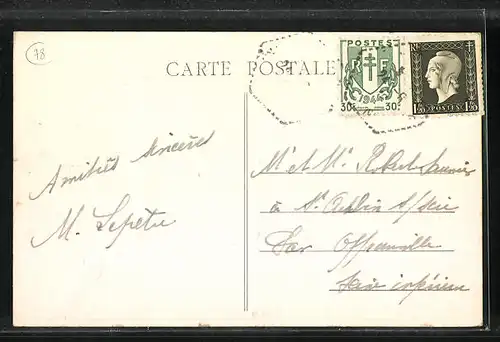 78
CARTE POSTALE
POSTES
RF
1944
30c 30c
RF
1f20 POSTES 1f20
Amitiés sincères
M. Lepetu
Mr et Me Robert
à St Aubin s/Scie
Par Offranville
Seine inférieure